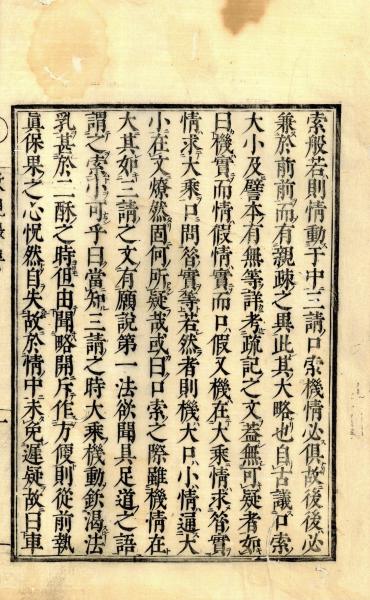 索般若則情動于中三請口索機情必俱故後後必
兼於前前而有親疎之異此其大略也自古議口索
大小及譬本有無等詳考疏記之文蓋無可疑者如
曰機實而情假情實而口假又機在大乘情求答實
情求大乘口問答實等若然者則機大口小情通大
小在文燎然固何所疑哉或曰口索之際雖機情在
大其如三請之文有願說第一法欲聞具足道之語
謂之索小可乎曰當知三請之時大乘機動欽渴法
乳甚於二酥之時但由聞略開斥作方便則從前執
眞保果之心怳然自失故於情中未免遲疑故曰車